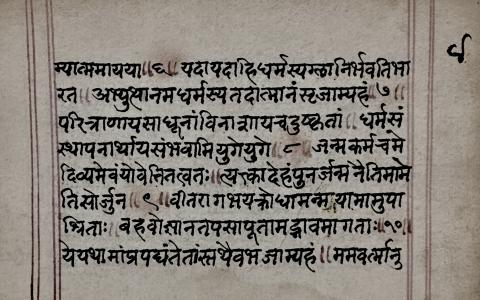 ८
म्यात्ममायया॥६॥ यदायदाहिधर्मस्यग्लानिर्भवतिभा
रत॥ अभ्युत्थानमधर्मस्यतदात्मानंसृजाम्यहं॥७॥
परित्राणायसाधूनांविनाशायचदुष्कृतां॥ धर्मसं
स्थापनार्थायसंभवामियुगेयुगे॥८ जन्मकर्मचमे
दिव्यमेवंयोवेत्तितत्वतः॥ त्यक्त्वादेहंपुनर्जन्मनैतिमामे
तिसोर्जुन॥९॥ वीतरागभयक्रोधामन्मयामामुपा
श्रिताः॥ बहवोज्ञानतपसापूतामद्भावमागताः॥१०॥
येयथामांप्रपद्यंतेतांस्तथैवभजाम्यहं॥ ममवर्त्मानु